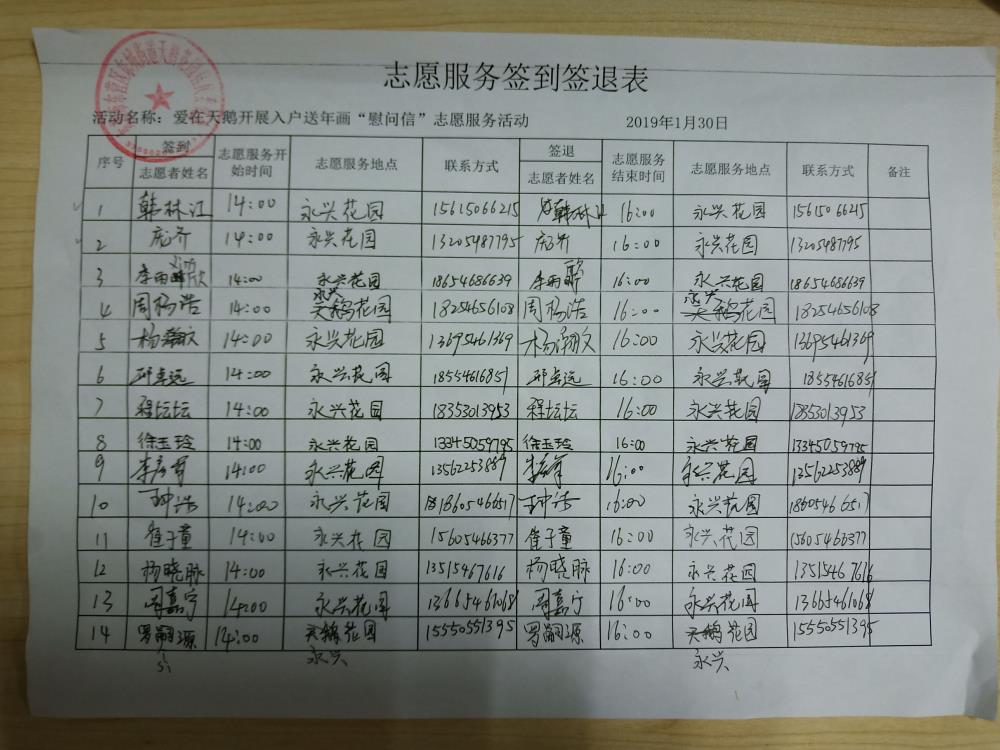 志愿服务签到签退表
活动名称：爱在天鹅开展入户送年画“慰问信”志愿服务活动 2019年1月30日
序号 签到 志愿者姓名 志愿服务开始时间 志愿服务地点 联系方式 签退 志愿者姓名 志愿服务结束时间 志愿服务地点 联系方式 备注
1 韩林江 14:00 永兴花园 15615066215 韩林江 16:00 永兴花园 15615066215
2 庞齐 14:00 永兴花园 13205487795 庞齐 16:00 永兴花园 13205487795
3 李雨欣 14:00 永兴花园 18654686639 李雨 16:00 永兴花园 18654686639
4 周杨浩 14:00 永兴花园 18254656108 周杨浩 16:00 永兴花园 18254656108
5 杨瀚文 14:00 永兴花园 13695461369 杨瀚文 16:00 永兴花园 13695461369
6 邱卓远 14:00 永兴花园 18554616851 邱卓远 16:00 永兴花园 18554616851
7 程坛坛 14:00 永兴花园 18353013953 程坛坛 16:00 永兴花园 18353013953
8 徐玉玲 14:00 永兴花园 13345059795 徐玉玲 16:00 永兴花园 13345059795
9 14:00 永兴花园 13562253889 16:00 永兴花园 13562253889
10 14:00 永兴花园 18605466517 16:00 永兴花园 18605466517
11 崔子童 14:00 永兴花园 15605466377 崔子童 16:00 永兴花园 15605466377
12 杨晓脉 14:00 永兴花园 13515467616 杨晓脉 16:00 永兴花园 13515467616
13 周嘉宁 14:00 永兴花园 13665461068 周嘉宁 16:00 永兴花园 13665461068
14 罗嗣源 14:00 天鹅花园 15550551395 罗嗣源 16:00 天鹅花园 15550551395
永兴 永兴